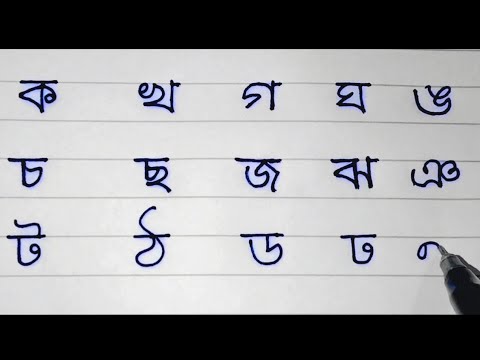 ক খ গ ঘ ঙ
চ ছ জ ঝ ঞ
ট ঠ ড ঢ